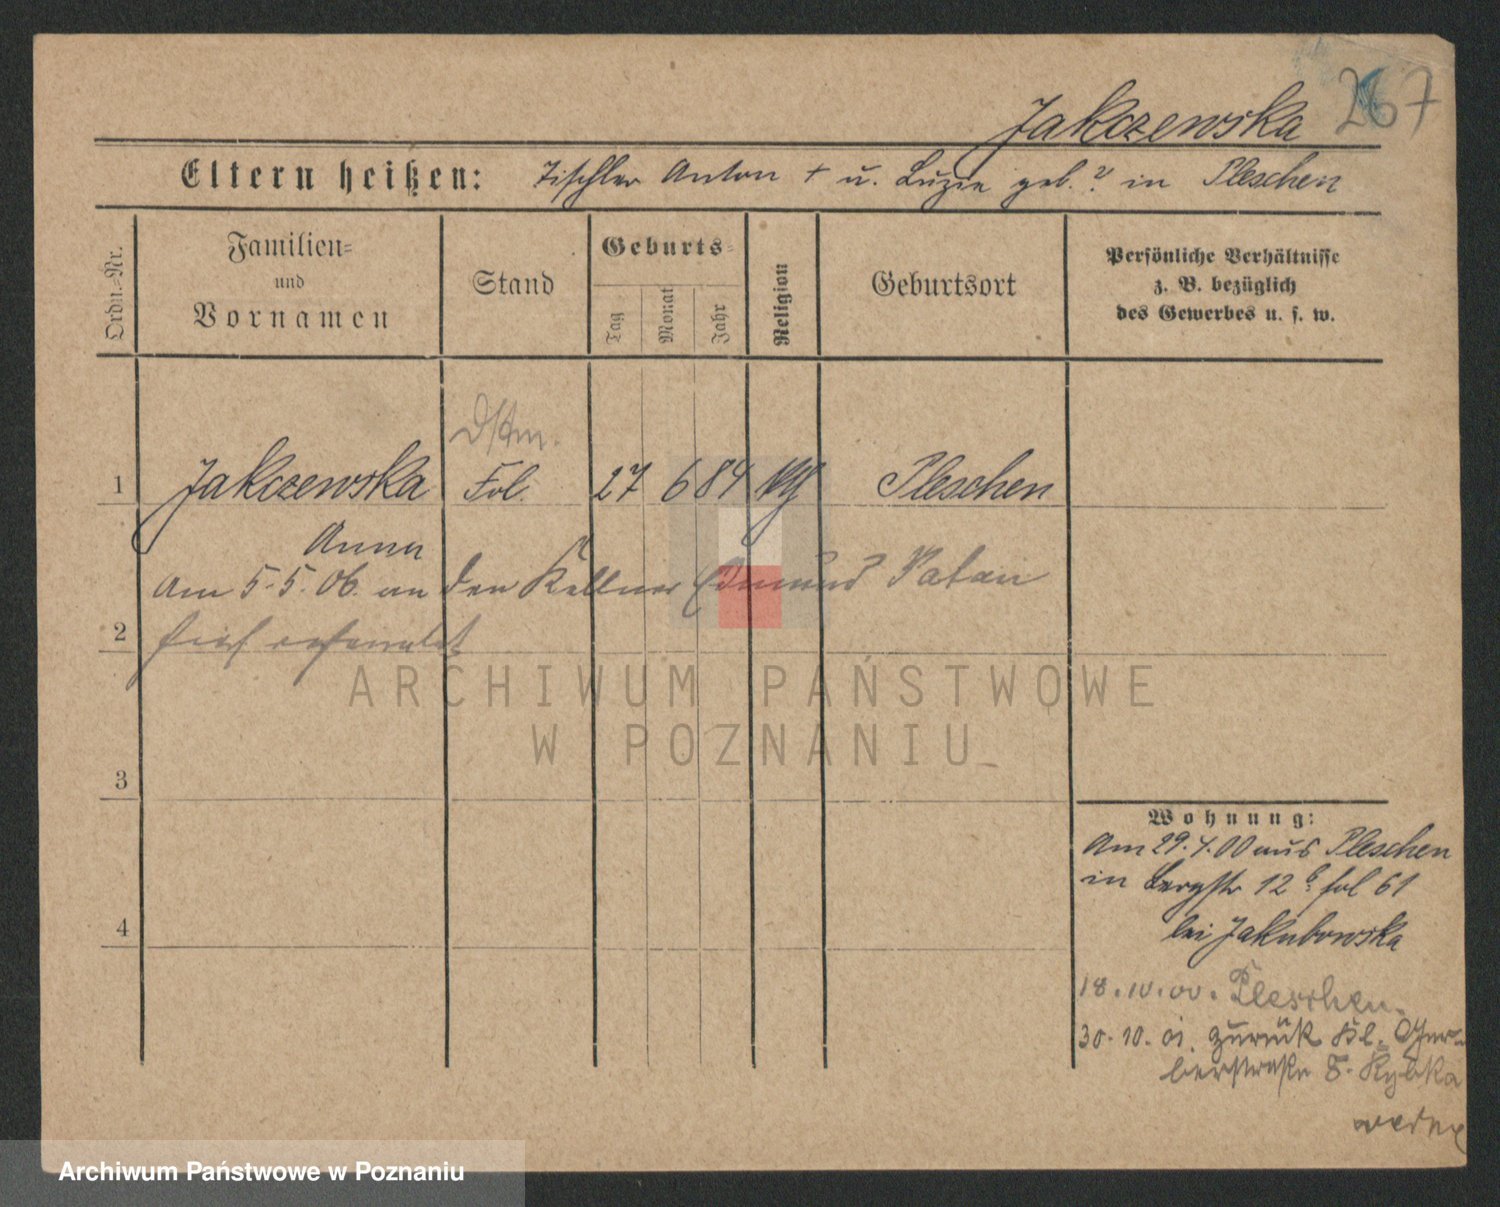 Jakczewska 267
Eltern heißen: Tischler Anton + u. Luzie geb. ? in Pleschen
Ordn.-Nr.
Familien-
und
Vornamen
Stand
Geburts-
Tag
Monat
Jahr
Religion
Geburtsort
Persönliche Verhältnisse
z. B. bezüglich
des Gewerbes u. s. w.
1 Jakczewska Frl. 27 6 84 Pleschen
Anna
Am 5.5.06. an den Kellner Edmund
2
ARCHIWUM PAŃSTWOWE
W POZNANIU
3
4
Wohnung:
Am 29.4.00 aus Pleschen
in Bergstr 12b fol 61
bei Jakubowska
18.10.00. Pleschen.
30.10.01. zurück Kl. Ger-
berstraße 8. Rybka
Archiwum Państwowe w Poznaniu